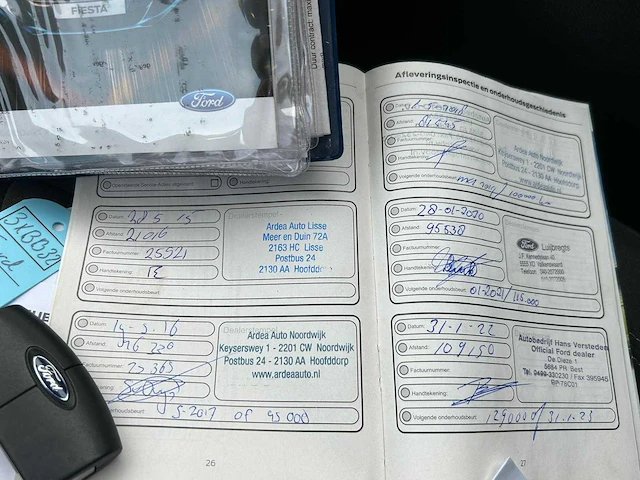 FIESTA
Ford
Duur contract: max
3XBB82
ord
Ford
Datum: 28 5 15
Afstand: 21016
Factuurnummer: 25521
Handtekening:
Volgende onderhoudsbeurt:
Dealerstempel
Ardea Auto Lisse
Meer en Duin 72A
2163 HC Lisse
Postbus 24
2130 AA Hoofddorp
Datum: 14-3-16
Afstand:
Factuurnummer: 25363
Handtekening:
onderhoudsbeurt: 3-2017 of 45 000
Dealerstempel
Ardea Auto Noordwijk
Keyserswey 1 - 2201 CW Noordwijk
Postbus 24 - 2130 AA Hoofddorp
www.ardeaauto.nl
26
Afleveringsinspectie en onderhoudsgeschiedenis
Datum:
Afstand:
Handtekening:
Volgende onderhoudsbeurt: mei 2019 / 100000 km
Ardea Auto Noordwijk
Keyserswey 1 - 2201 CW Noordwijk
Postbus 24 - 2130 AA Hoofddorp
www.ardeaauto.nl
Datum: 28-01-2020
Afstand: 95538
Factuurnummer:
Handtekening:
Volgende onderhoudsbeurt: 01-2021/115.000
Ford Luijbregts
J.F. Kennedylaan 40
5555 XD Valkenswaard
Datum: 31-1-22
Afstand: 109150
Factuurnummer:
Handtekening:
Volgende onderhoudsbeurt: 129000 / 31.1.23
Autobedrijf Hans Versteden
Official Ford dealer
De Dieze 1
5684 PR Best
Tel. 0499-330230 / Fax 395945
BP-78C01
27